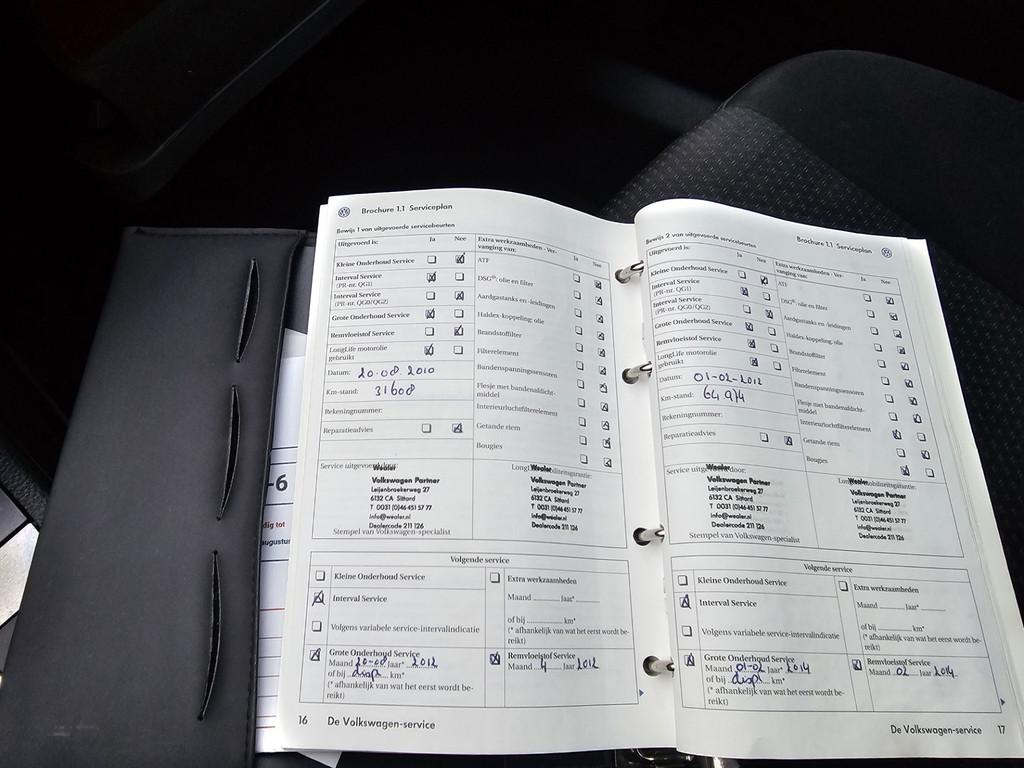 Brochure 1.1 Serviceplan
Bewijs 1 van uitgevoerde servicebeurten
Uitgevoerd is: Ja Nee
Kleine Onderhoud Service
Interval Service
(PR-nr. QG1)
Interval Service
(PR-nr. QG0/QG2)
Grote Onderhoud Service
Remvloeistof Service
LongLife motorolie
gebruikt
Datum: 20-08-2010
Km-stand: 31608
Rekeningnummer:
Reparatieadvies
Extra werkzaamheden - Ver-
vanging van: Ja Nee
ATF
DSG®: olie en filter
Aardgastanks en -leidingen
Haldex-koppeling: olie
Brandstoffilter
Filterelement
Bandenspanningssensoren
Flesje met bandenafdicht-
middel
Interieurluchtfilterelement
Getande riem
Bougies
Service uitgevoerd door:
Wealer
Volkswagen Partner
Leijenbroekerweg 27
6132 CA Sittard
T 0031 (0)46 451 57 77
info@wealer.nl
Dealercode 211 126
Stempel van Volkswagen-specialist
Wealer
Volkswagen Partner
Leijenbroekerweg 27
6132 CA Sittard
T 0031 (0)46 451 57 77
info@wealer.nl
Dealercode 211 126
Volgende service
Kleine Onderhoud Service
Interval Service
Volgens variabele service-intervalindicatie
Grote Onderhoud Service
Maand 20-08 Jaar* 2012
of bij displ km*
(* afhankelijk van wat het eerst wordt be-
reikt)
Extra werkzaamheden
Maand Jaar*
of bij km*
(* afhankelijk van wat het eerst wordt be-
reikt)
Remvloeistof Service
Maand 4 Jaar 2012
16 De Volkswagen-service
Brochure 1.1 Serviceplan
Bewijs 2 van uitgevoerde servicebeurten
Uitgevoerd is: Ja Nee
Kleine Onderhoud Service
Interval Service
(PR-nr. QG1)
Interval Service
(PR-nr. QG0/QG2)
Grote Onderhoud Service
Remvloeistof Service
LongLife motorolie
gebruikt
Datum: 01-02-2012
Km-stand: 64974
Rekeningnummer:
Reparatieadvies
Extra werkzaamheden - Ver-
vanging van: Ja Nee
ATF
DSG®: olie en filter
Aardgastanks en -leidingen
Haldex-koppeling: olie
Brandstoffilter
Filterelement
Bandenspanningssensoren
Flesje met bandenafdicht-
middel
Interieurluchtfilterelement
Getande riem
Bougies
Service uitgevoerd door:
Wealer
Volkswagen Partner
Leijenbroekerweg 27
6132 CA Sittard
T 0031 (0)46 451 57 77
info@wealer.nl
Dealercode 211 126
Stempel van Volkswagen-specialist
Wealer
Volkswagen Partner
Leijenbroekerweg 27
6132 CA Sittard
T 0031 (0)46 451 57 77
info@wealer.nl
Dealercode 211 126
Volgende service
Kleine Onderhoud Service
Interval Service
Volgens variabele service-intervalindicatie
Grote Onderhoud Service
Maand 01-02 Jaar* 2014
of bij displ km*
(* afhankelijk van wat het eerst wordt be-
reikt)
Extra werkzaamheden
Maand Jaar*
of bij km*
(* afhankelijk van wat het eerst wordt be-
reikt)
Remvloeistof Service
Maand 02 Jaar 2014
De Volkswagen-service 17
-6
dig tot
augustus